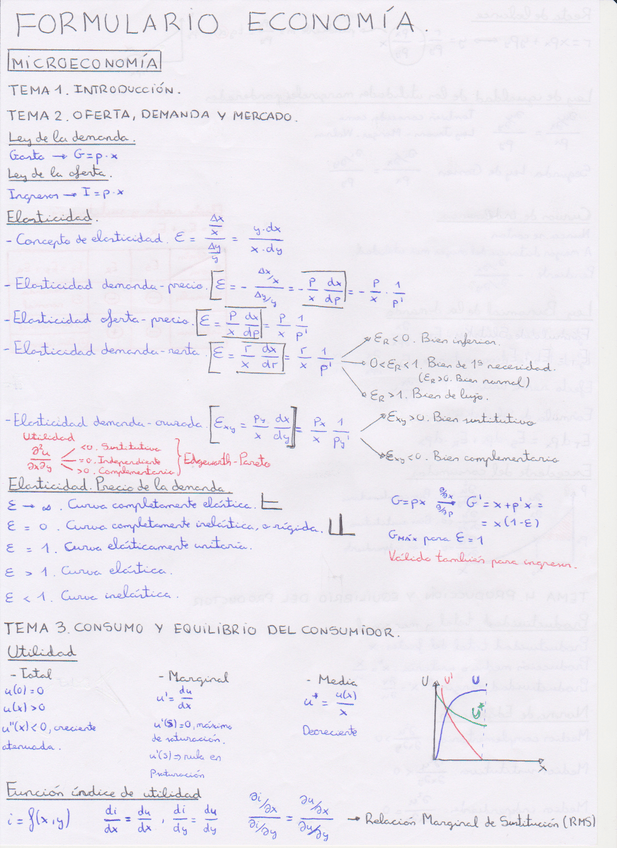 FORMULARIO ECONOMÍA.
MICROECONOMÍA
TEMA 1. INTRODUCCIÓN.
TEMA 2. OFERTA, DEMANDA Y MERCADO.
Ley de la demanda.
Gasto → G = p · x
Ley de la oferta.
Ingresos → I = p · x
Elasticidad.
- Concepto de elasticidad. Ɛ = (Δx/x)/(Δy/y) = (y·dx)/(x·dy)
- Elasticidad demanda-precio. [Ɛ = - (Δx/x)/(Δy/y) = - p/x dx/dp] = - p/x · 1/p'
- Elasticidad oferta-precio. [Ɛ = p/x dx/dp] = p/x 1/p'
- Elasticidad demanda-renta. [Ɛ = r/x dx/dr] = r/x 1/p'
ƐR<0. Bien inferior.
0<ƐR<1. Bien de 1ª necesidad.
(ƐR>0. Bien normal)
ƐR>1. Bien de lujo.
- Elasticidad demanda-cruzada. [Ɛxy = Py/x dx/dy] = Px/x 1/Py'
Ɛxy>0. Bien sustitutivo
Ɛxy<0. Bien complementario
Utilidad
∂²u/∂x∂y
<0. Sustitutivo
=0. Independiente
>0. Complementario
Edgeworth-Pareto
Elasticidad. Precio de la demanda.
Ɛ → ∞. Curva completamente elástica.
Ɛ = 0. Curva completamente inelástica, o rígida.
Ɛ = 1. Curva elásticamente unitaria.
Ɛ > 1. Curva elástica.
Ɛ < 1. Curva inelástica.
G = px → G' = x + p'x =
= x(1-Ɛ)
GMÁX para Ɛ = 1
Válido también para ingresos.
TEMA 3. CONSUMO Y EQUILIBRIO DEL CONSUMIDOR.
Utilidad
- Total
u(0) = 0
u(x) > 0
u''(x) < 0, creciente
atenuada.
- Marginal
u' = du/dx
u'(S) = 0, máximo
de saturación.
u'(s) → nula en
saturación
- Media
u* = u(x)/x
Decreciente
U U' U
U*
X
Función índice de utilidad
i = f(x,y) di/dx = du/dx , di/dy = du/dy (∂i/∂x)/(∂i/∂y) = (∂u/∂x)/(∂u/∂y) → Relación Marginal de Sustitución (RMS)